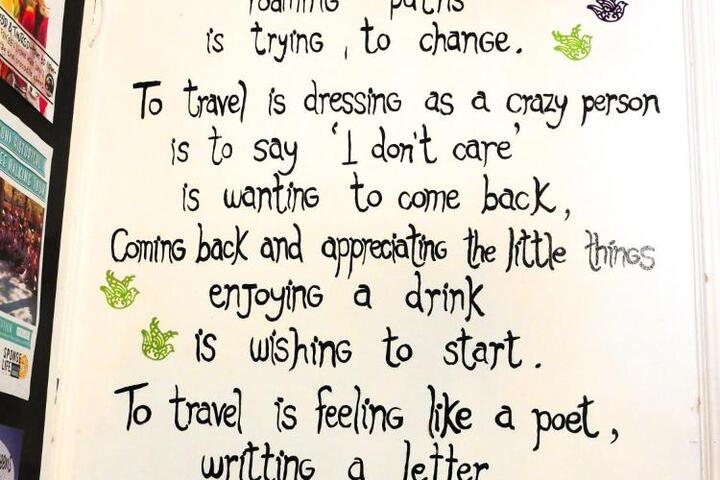 roaming paths
is trying , to change.
To travel is dressing as a crazy person
is to say 'I don't care'
is wanting to come back,
Coming back and appreciating the little things
enjoying a drink
is wishing to start.
To travel is feeling like a poet,
writting a letter
WALKING TOUR
SPONGE
LIFE